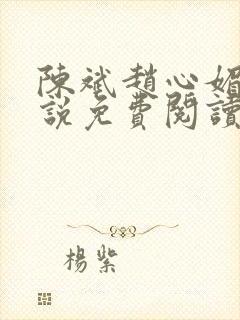 陳斌趙心媚
說免費閱讀
楊紫